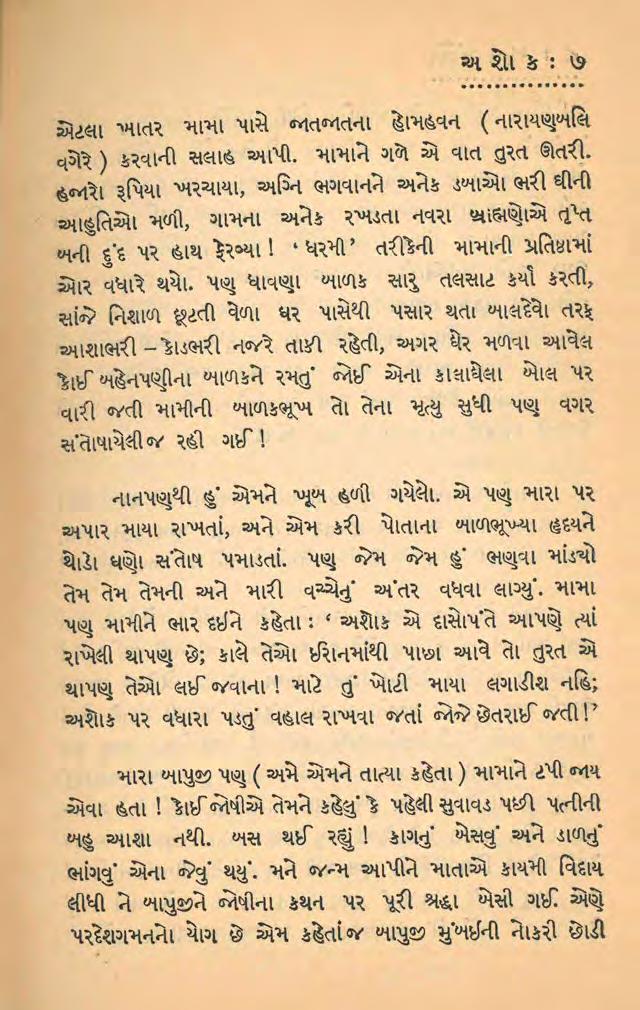 અ શો ક : ૭
એટલા ખાતર મામા પાસે જાતજાતના હોમહવન ( નારાયણબલિ
વગેરે ) કરવાની સલાહ આપી. મામાને ગળે એ વાત તુરત ઊતરી.
હજારો રૂપિયા ખરચાયા, અગ્નિ ભગવાનને અનેક ડબાઓ ભરી ઘીની
આહુતિઓ મળી, ગામના અનેક રખડતા નવરા બ્રાહ્મણોએ તૃપ્ત
બની દુંદ પર હાથ ફેરવ્યા ! ‘ ધરમી ’ તરીકેની મામાની પ્રતિષ્ઠામાં
ઓર વધારે થયો. પણ ધાવણા બાળક સારુ તલસાટ કર્યા કરતી,
સાંજે નિશાળ છૂટતી વેળા ઘર પાસેથી પસાર થતા બાલદેવો તરફ
આશાભરી – કોડભરી નજરે તાકી રહેતી, અગર ઘેર મળવા આવેલ
કોઈ બહેનપણીના બાળકને રમતું જોઈ એના કાલાઘેલા બોલ પર
વારી જતી મામીની બાળકભૂખ તો તેના મૃત્યુ સુધી પણ વગર
સંતોષાયેલીજ રહી ગઈ !
નાનપણથી હું એમને ખૂબ હળી ગયેલો. એ પણ મારા પર
અપાર માયા રાખતાં, અને એમ કરી પોતાના બાળભૂખ્યા હૃદયને
થોડો ઘણો સંતોષ પમાડતાં. પણ જેમ જેમ હું ભણવા માંડ્યો
તેમ તેમ તેમની અને મારી વચ્ચેનું અંતર વધવા લાગ્યું. મામા
પણ મામીને ભાર દઈને કહેતા : ‘ અશોક એ દાસોપંતે આપણે ત્યાં
રાખેલી થાપણ છે; કાલે તેઓ ઈરાનમાંથી પાછા આવે તો તુરત એ
થાપણ તેઓ લઈ જવાના ! માટે તું ખોટી માયા લગાડીશ નહિ;
અશોક પર વધારા પડતું વહાલ રાખવા જતાં જોજે છેતરાઈ જતી !’
મારા બાપુજી પણ ( અમે એમને તાત્યા કહેતા ) મામાને ટપી જાય
એવા હતા ! કોઈ જોષીએ તેમને કહેલું કે પહેલી સુવાવડ પછી પત્નીની
બહુ આશા નથી. બસ થઈ રહ્યું ! કાગનું બેસવું અને ડાળનું
ભાંગવું એના જેવું થયું. મને જન્મ આપીને માતાએ કાયમી વિદાય
લીધી ને બાપુજીને જોષીના કથન પર પૂરી શ્રદ્ધા બેસી ગઈ. એણે
પરદેશગમનનો યોગ છે એમ કહેતાંજ બાપુજી મુંબઈની નોકરી છોડી